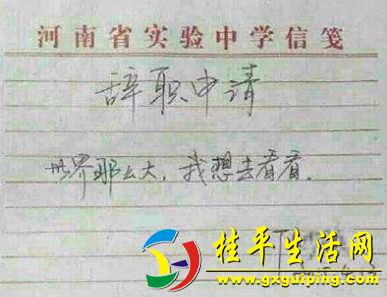 河南省实验中学信笺
辞职申请
世界那么大，我想去看看。
桂平生活网
www.gxguiping.com